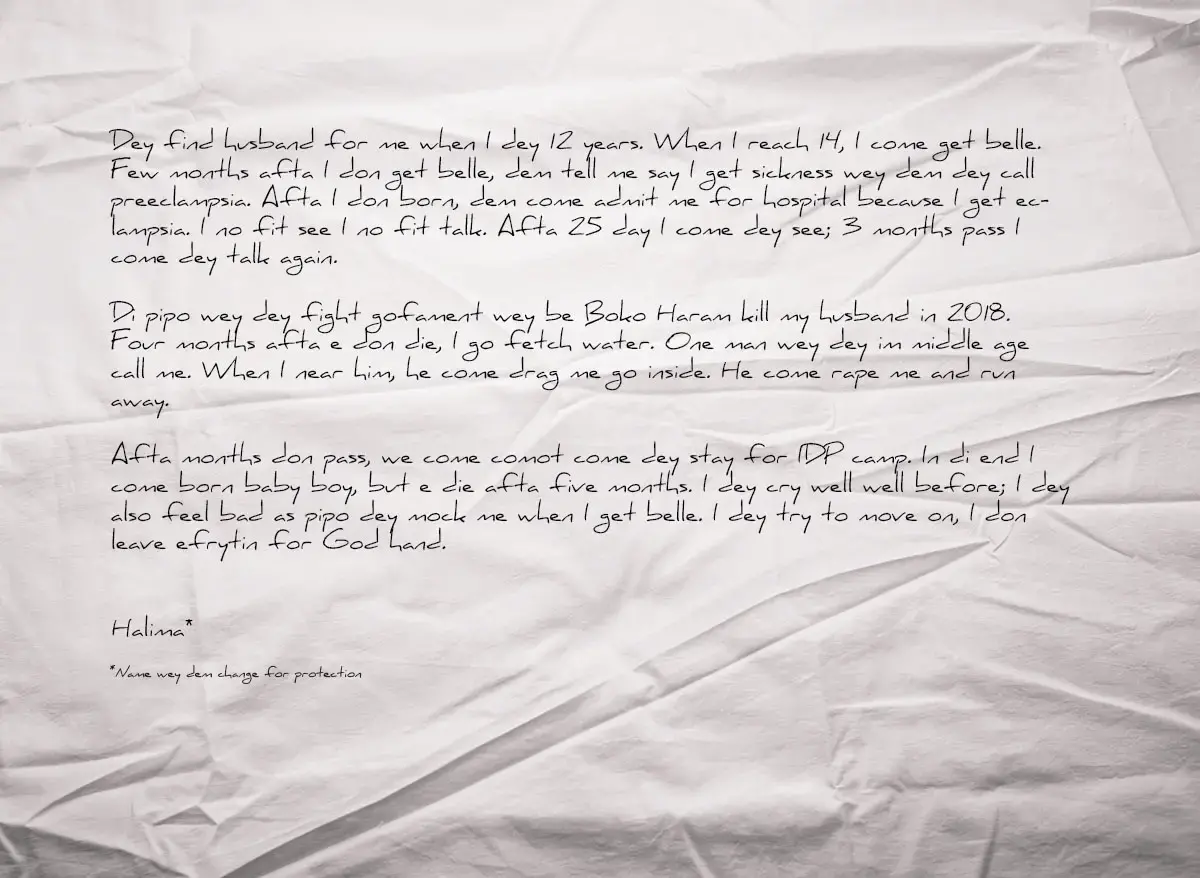 Dey find husband for me when I dey 12 years. When I reach 14, I come get belle.
Few months afta I don get belle, dem tell me say I get sickness wey dem dey call
preeclampsia. Afta I don born, dem come admit me for hospital because I get ec-
lampsia. I no fit see I no fit talk. Afta 25 day I come dey see; 3 months pass I
come dey talk again.
Di pipo wey dey fight gofament wey be Boko Haram kill my husband in 2018.
Four months afta e don die, I go fetch water. One man wey dey im middle age
call me. When I near him, he come drag me go inside. He come rape me and run
away.
Afta months don pass, we come comot come dey stay for IDP camp. In di end I
come born baby boy, but e die afta five months. I dey cry well well before; I dey
also feel bad as pipo dey mock me when I get belle. I dey try to move on, I don
leave efrytin for God hand.
Halima*
*Name wey dem change for protection